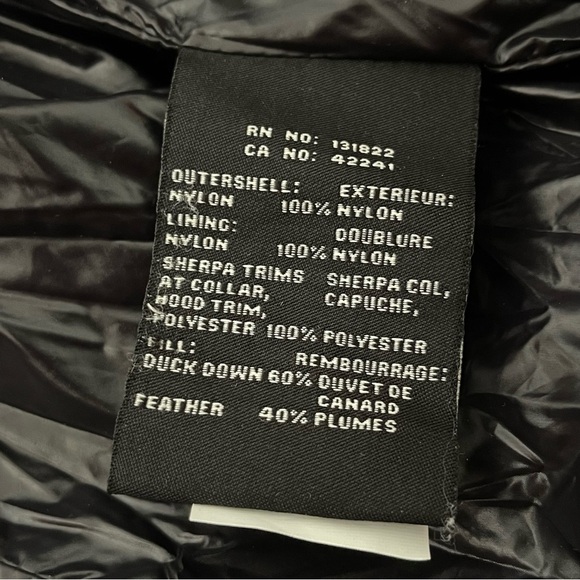 RN NO: 131822
CA NO: 42241
OUTERSHELL: EXTERIEUR:
NYLON 100% NYLON
LINING: DOUBLURE
NYLON 100% NYLON
SHERPA TRIMS SHERPA COL,
AT COLLAR, CAPUCHE,
HOOD TRIM,
POLYESTER 100% POLYESTER
FILL: REMBOURRAGE:
DUCK DOWN 60% DUVET DE
CANARD
FEATHER 40% PLUMES